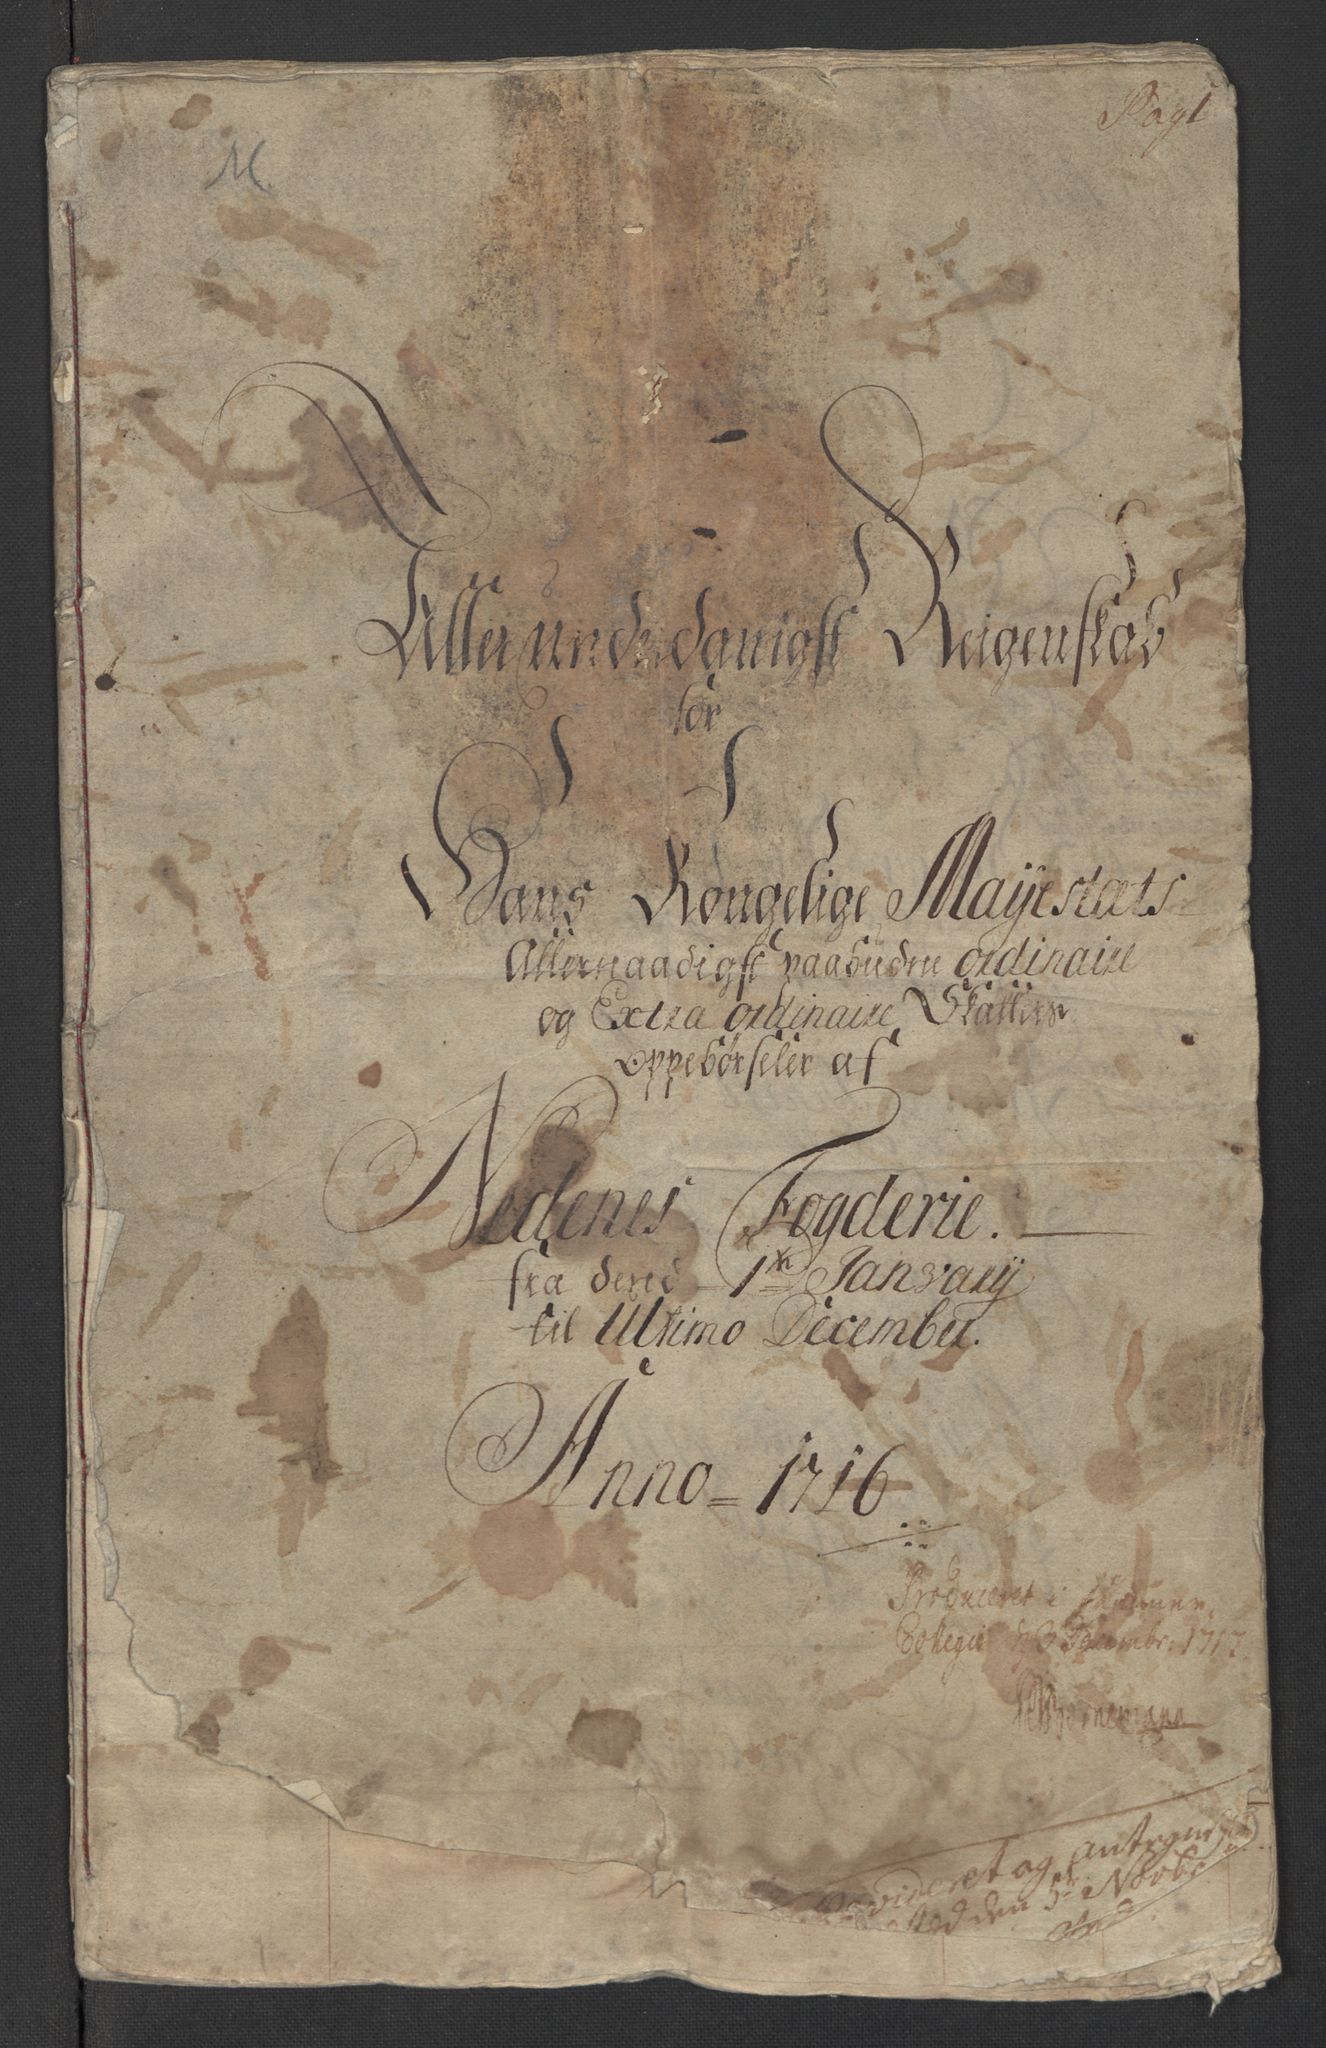 Pag 1
M
Allerunderdanigst Reigenskab
for
Hans Kongelige Mayestæts
Allernaadigst paabudne ordinaire
og Extra ordinaire Skatters
oppebørseler af
Nedenes Fogderie.
fra dend 1te January
til Ultimo December.
Anno = 1716
Produceret i Kammer
Collegio d 3 Decembr. 1717
Bornemann
Revideret og antegnelse
den 5te Novbr